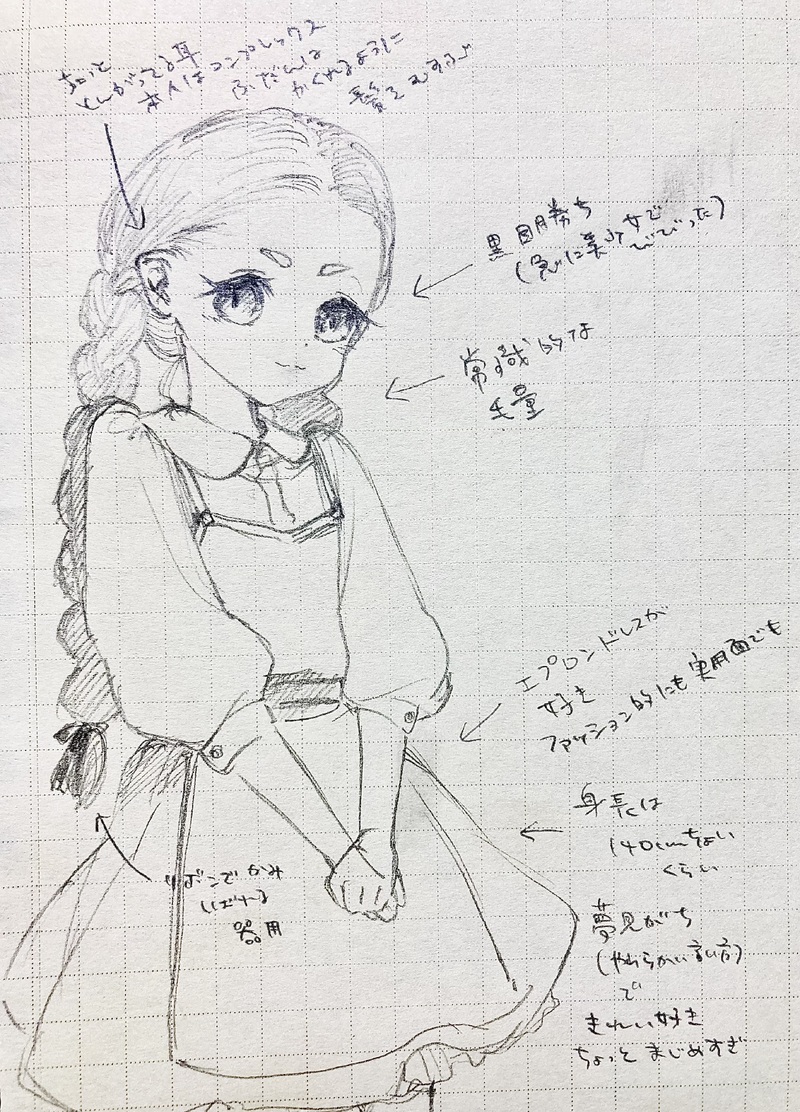 ちょっと
とんがってる耳
本人はコンプレックス
ふだんは
かくれるように
髪をむすぶ
黒目勝ち
(急に美少女で
びびった)
常識的な
毛量
エプロンドレスが
好き
ファッション的にも実用面でも
身長は
140cmちょい
くらい
リボンでかみ
しばれる
器用
夢見がち
(やわらかい言い方)
で
きれい好き
ちょっとまじめすぎ